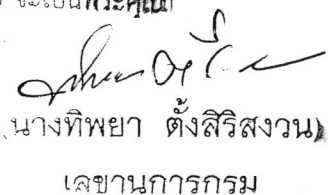 จะเป็นพระคุณ
(นางทิพยา ตั้งสิริสงวน)
เลขานุการกรม